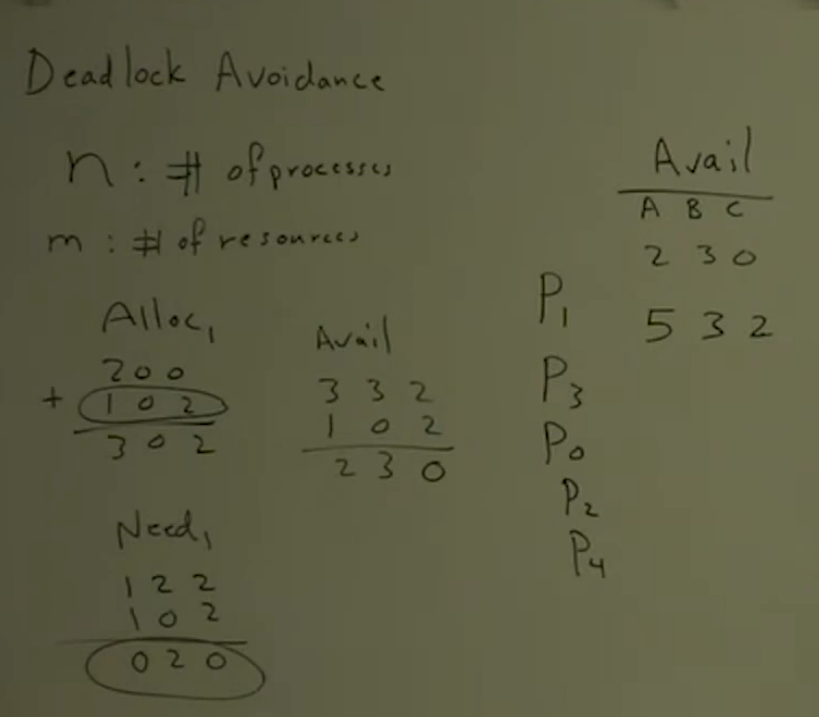 Deadlock Avoidance
n : # of processes
m : # of resources
Alloc₁
200
+ 102
302
Avail
3 3 2
1 0 2
2 3 0
Need₁
1 2 2
1 0 2
0 2 0
P₁
P₃
P₀
P₂
P₄
Avail
A B C
2 3 0
5 3 2